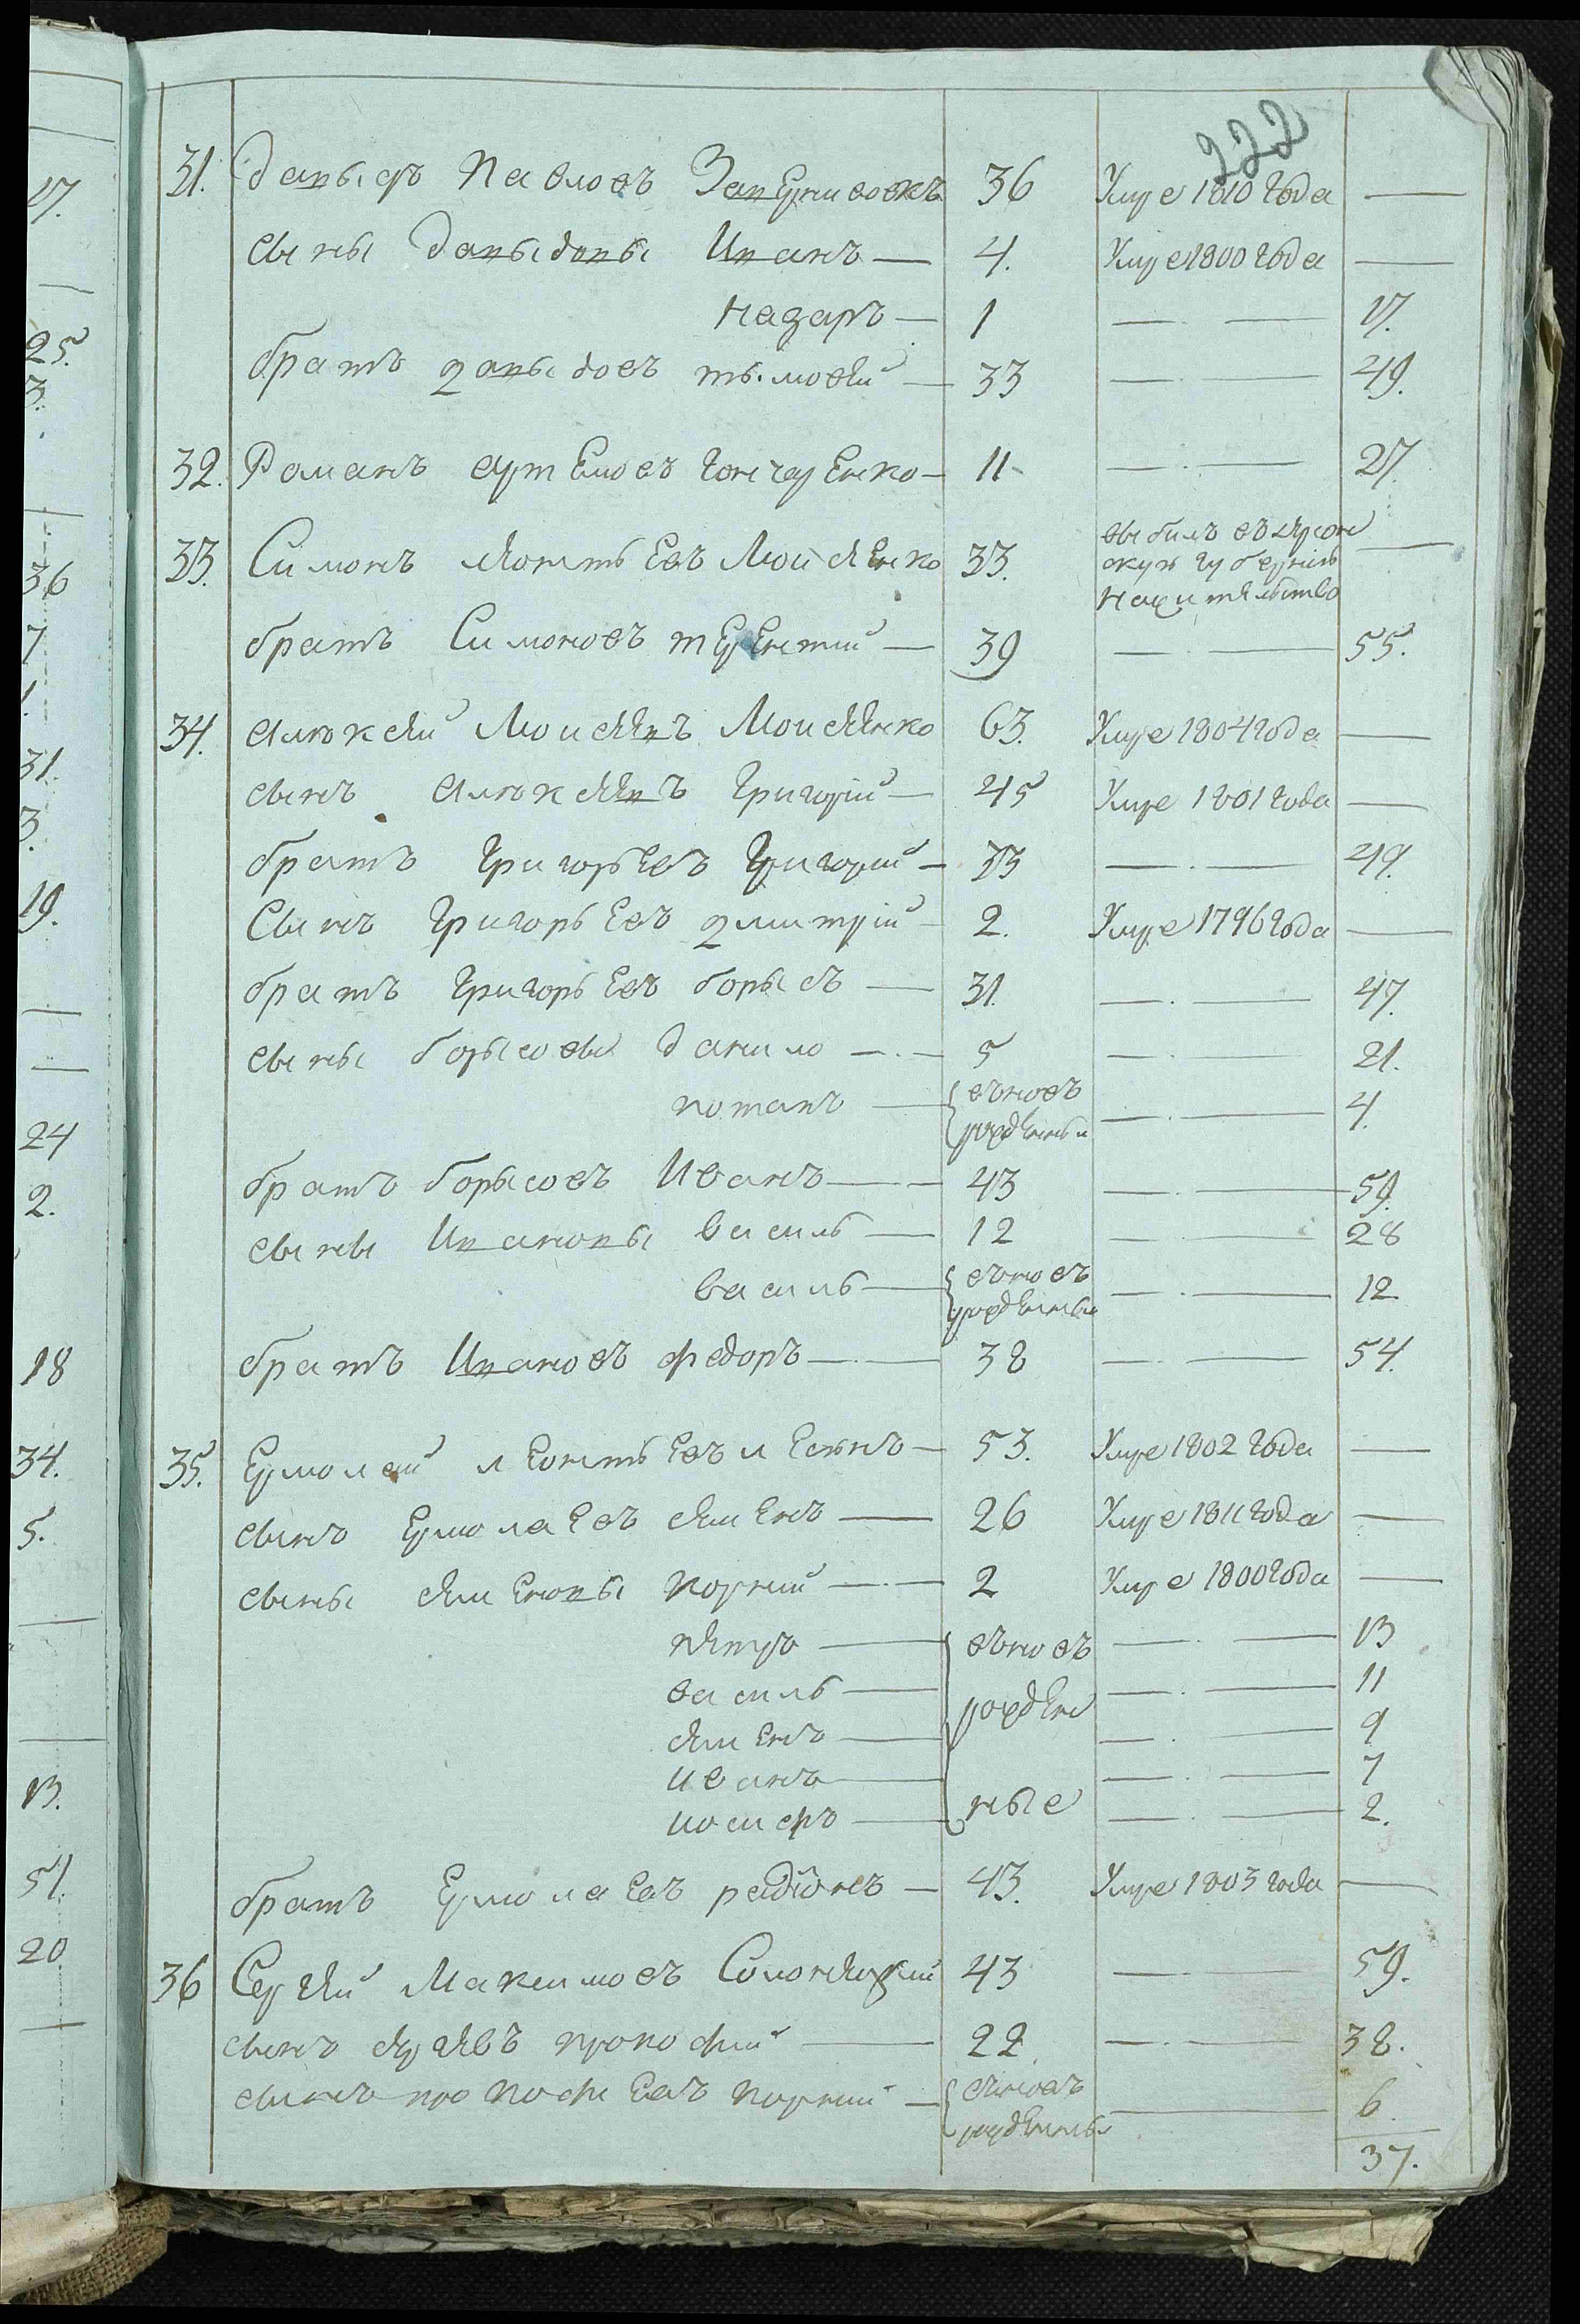 222
31. Давыдъ Павловъ 36 Умре 1810 года —
сыны Давыдовы Иванъ — 4. Умре 1800 года —
Назаръ — 1 — 17.
братъ Давыдовъ тымофѣй — 33 — 49.
32. Романъ артемовъ гончаренко — 11 — 27
33. Симонъ Моисѣенко 33. выбылъ въ херсон —
скую губернию
на жительство
братъ Симоновъ терентий — 39 — 55.
34. Алѣксѣй Моисѣявъ Моисѣенко 63. Умре 1804 года —
сынъ Алѣксѣявъ Григорій — 45 Умре 1801 года —
братъ Григорьевъ Григорий — 33 — 49.
Сынъ Григорьевъ дмитрій — 2. Умре 1796 года —
братъ Григорьевъ борысъ — 31. — 47.
сыны борысовы данило — 5 — 21.
потапъ — { вновъ — 4.
рожденный
братъ борысовъ Иванъ — 43 — 59.
сыны Ивановы василь — 12 — 28
василь — { вновъ — 12
рожденный
братъ Ивановъ федоръ — 38 — 54.
35. Ермолай 53. Умре 1802 года —
сынъ Ермолаевъ сѣменъ — 26 Умре 1811 года —
сыны сѣменовы корний — 2 Умре 1800 года —
пѣтръ — вновъ — 13
василь — рожден — 11
сѣменъ — 9
иванъ — 7
иосифъ — ные — 2.
братъ Ермолаевъ радіонъ — 43. Умре 1803 года —
36 Сергѣй Максимовъ 43 — 59.
сынъ сѣргѣевъ прокофий — 22. — 38.
сынъ прокофиевъ корний — { вновъ — 6.
рожденный
37.